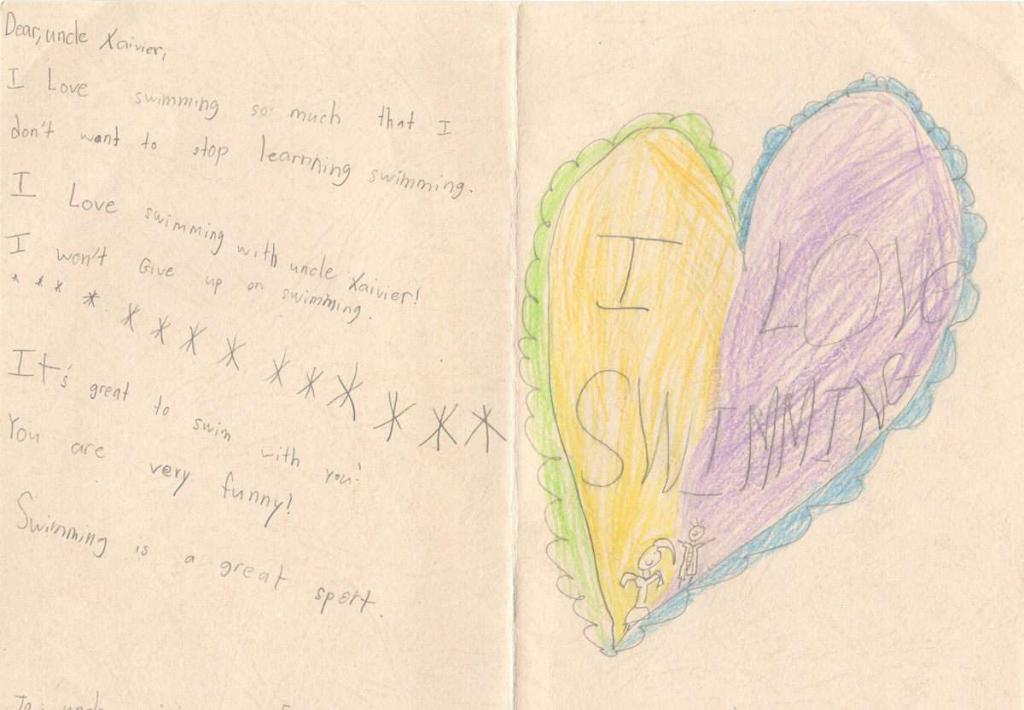 Dear, uncle Xaivier,
I Love swimming so much that I
don't want to stop learnning swimming.
I Love swimming with uncle Xaivier!
I won't Give up on swimming.
It's great to swim with you!
You are very funny!
Swimming is a great sport.
I LOVE
SWIMMING